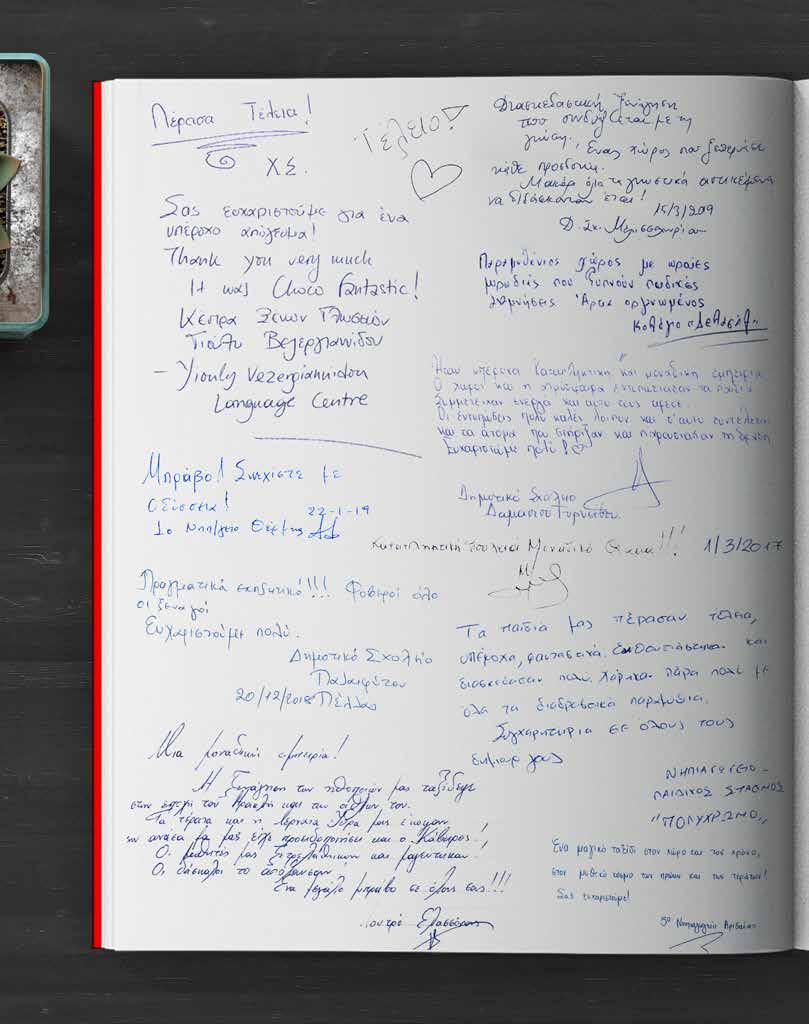 Πέρασα Τέλεια!
Χ.Σ.
Τέλειο!
Σας ευχαριστούμε για ένα
υπέροχο απόγευμα!
Thank you very much
It was Choco Fantastic!
Κέντρα Ξένων Γλωσσών
Γιούλη Βεζεργιαννίδου
- Yiouly Vezergiannidou
Language Centre
Μπράβο! Συνεχίστε με
22-1-19
1ο Νηπ/γείο Θέρμης
Πραγματικά εκπληκτικό!!! Φοβεροί όλο
οι ξεναγοί
Ευχαριστούμε πολύ.
Δημοτικό Σχολείο
Παλαιφύτου
20/12/2018 Πέλλας
Μια μοναδική εμπειρία!
Η ξενάγηση των ηθοποιών μας ταξίδεψε
στην εποχή του Ηρακλή και των άθλων του.
Τα τέρατα και η Λερναία Ύδρα μας έκοψαν
την ανάσα μα μας είχε προειδοποιήσει και ο Κάβειρος!
Οι μαθητές μας ξετρελάθηκαν και μαγεύτηκαν.
Οι δάσκαλοι το απόλαυσαν
Ένα μεγάλο μπράβο σε όλους σας!!!
Διασκεδαστική ξενάγηση
που συνδυάζεται με τη
γνώση. Ένας χώρος που ξεπερνάει
κάθε προσδοκία.
Μακάρι όλα τα γνωστικά αντικείμενα
να διδάσκονταν έτσι!
15/3/2019
Δ. Σχ. Μελισσοχωρίου
Παραμυθένιος χώρος με ωραίες
μυρωδιές που ξυπνούν παιδικές
αναμνήσεις Άρτια οργανωμένος
Κολέγιο «Δελασάλ»
Ήταν υπέροχα καταπληκτική και μοναδική εμπειρία.
Ο χώρος και η ατμόσφαιρα εντυπωσίασαν τα παιδιά
Συμμετείχαν ενεργά και αυτό τους άρεσε.
Οι εντυπώσεις πολύ καλές λοιπόν και σ'αυτό συντέλεσαν
και τα άτομα που στήριξαν και παρουσίασαν τη δράση
Ευχαριστούμε πολύ!
Δημοτικό Σχολείο
Δαμασίου Τυρνάβου
Καταπληκτική δουλειά Μοναδικό Θέαμα!!! 1/3/2017
Τα παιδιά μας πέρασαν τέλεια,
υπέροχα, φανταστικά. Ενθουσιάστηκαν και
διασκέδασαν πολύ. Χάρηκαν πάρα πολύ με
όλα τα διαδραστικά παραμύθια.
Συγχαρητήρια σε όλους τους
ΝΗΠΙΑΓΩΓΕΙΟ -
ΠΑΙΔΙΚΟΣ ΣΤΑΘΜΟΣ
"ΠΟΛΥΧΡΩΜΟ"
Ένα μαγικό ταξίδι στον χώρο και τον χρόνο,
στον μυθικό κόσμο των ηρώων και των τεράτων!
Σας ευχαριστούμε!
5ο Νηπιαγωγείο Αριδαίας